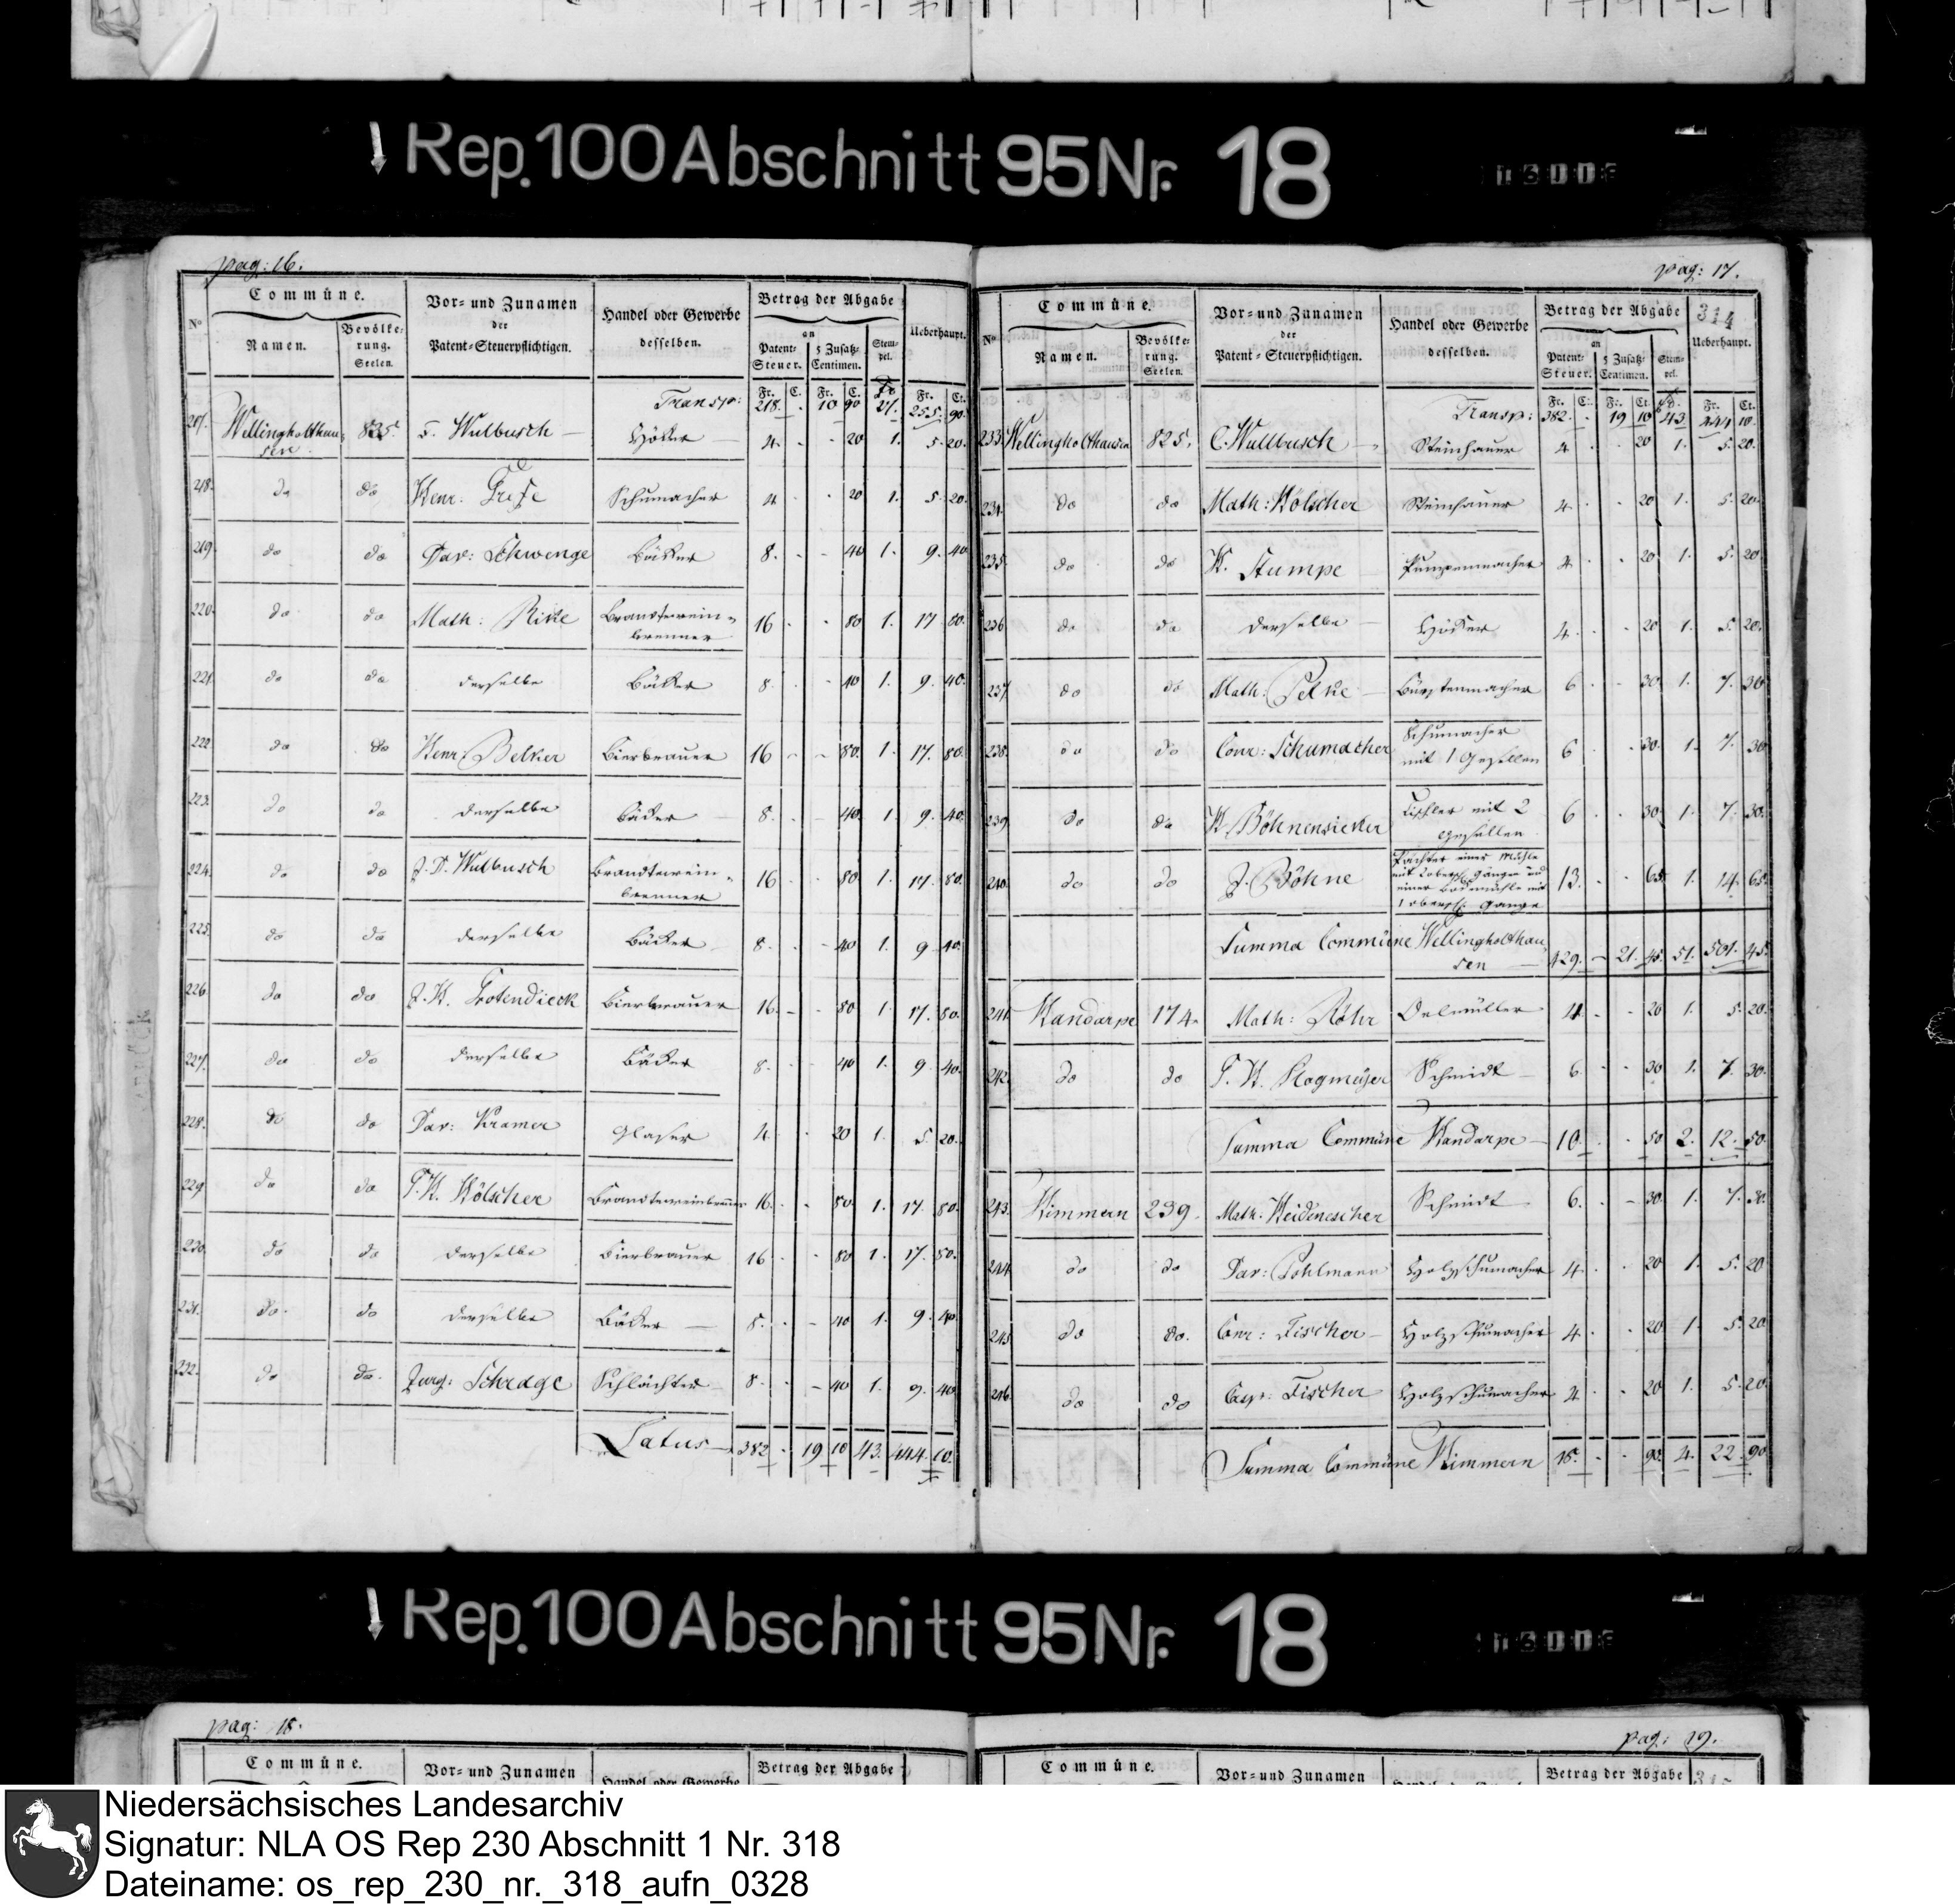 Rep. 100 Abschnitt 95 Nr. 18
pag: 16.
Commüne.
Vor- und Zunamen
der
Patent-Steuerpflichtigen.
Handel oder Gewerbe
desselben.
Betrag der Abgabe
an
Ueberhaupt.
No
Namen.
Bevölke-
rung.
Seelen.
Patent-
Steuer.
5 Zusatz-
Centimen.
Stem-
pel.
Fr. C. Fr. C. Fr. Fr. Ct.
Transp: 218. - 10 90 27. 255. 90.
217. Wellingholthau- 825. F. Wulbusch Höker 4. 20 1. 5. 20.
sen.
218. do do Henr: Schumacher 4 20 1. 5. 20.
219. do do Dav: Schwenge Bäcker 8. 40 1. 9. 40
220. do do Math: Brandtewein- 16 80 1. 17 80.
brenner
221. do do derselbe Bäcker 8. 40 1. 9. 40.
222. do do Henr: Belker Bierbrauer 16 80. 1. 17. 80.
223. do do derselbe Bäcker 8. 40 1. 9. 40.
224. do do J. D. Wulbusch Brandtewein- 16 80 1. 17. 80.
brenner
225. do do derselbe Bäcker 8. 40 1. 9 40.
226. do do J. H. Bierbrauer 16. 80 1. 17. 80.
227. do do derselbe Bäcker 8. 40 1. 9 40.
228. do do Dav: Kramer Glaser 4. 20 1. 5. 20.
229. do do Hölscher Brandteweinbrenner 16. 80. 1. 17. 80.
230. do do derselbe Bierbrauer 16 80 1. 17. 80.
231. do do derselbe Bäcker 8. 40 1. 9. 40.
232. do do. Jurg: Schrage Schlächter 8. 40 1. 9. 40
Latus 382 - 19 10 43. 444. 10.
pag: 17.
314
Commüne.
Vor- und Zunamen
der
Patent-Steuerpflichtigen.
Handel oder Gewerbe
desselben.
Betrag der Abgabe
an
Ueberhaupt.
No
Namen.
Bevölke-
rung.
Seelen.
Patent-
Steuer.
5 Zusatz-
Centimen.
Stem-
pel.
Fr. C. Fr. Ct. Fr. Ct.
Transp: 382. - 19 10 43 444 10.
233. Wellingholthausen 825. C. Wullbusch Steinhauer 4 20 1. 5. 20.
234. do do Math: Hölscher Steinhauer 4 20 1. 5. 20.
235. do do H. Stumpe Pumpenmacher 4 20 1. 5. 20
236 do do derselbe Höcker 4. 20 1. 5. 20.
237. do do Math: Bürstenmacher 6 30 1. 7. 30
238. do do Conr: Schumacher Schumacher 6 30. 1. 7. 30
mit 1 Gesellen
239. do do H. Böhnensieker Tischler mit 2 6 30. 1. 7. 30.
Gesellen
240. do do J. Böhne Pächter einer Mühle 13. 65. 1. 14. 65.
mit 2 obersch. Gänge und
einer Bockemühle mit
1 obersch. Gange
Summa Commüne Wellingholthau 429. - 21. 45. 51. 501. 45.
sen
241. Handarpe 174. Math: Röhr Oelmüller 4. 20 1. 5. 20.
242. do do Schmidt 6. 30 1. 7. 30.
Summa Commüne Handarpe 10. 50 2. 12. 50.
243. Himmern 239. Math: Heidenescher Schmidt 6. 30. 1. 7. 30.
244. do do Dav: Pohlmann Holzschumacher 4. 20 1. 5. 20
245 do do. Conr: Fischer Holzschumacher 4. 20 1. 5. 20
246. do do Casp: Fischer Holzschumacher 4. 20 1. 5. 20.
Summa Commüne Himmern 18. 90. 4. 22. 90
Rep. 100 Abschnitt 95 Nr. 18
pag: 18.
Commüne.
Vor- und Zunamen
Handel oder Gewerbe
Betrag der Abgabe
pag: 19.
Commüne.
Vor- und Zunamen
Betrag der Abgabe
Niedersächsisches Landesarchiv
Signatur: NLA OS Rep 230 Abschnitt 1 Nr. 318
Dateiname: os_rep_230_nr._318_aufn_0328